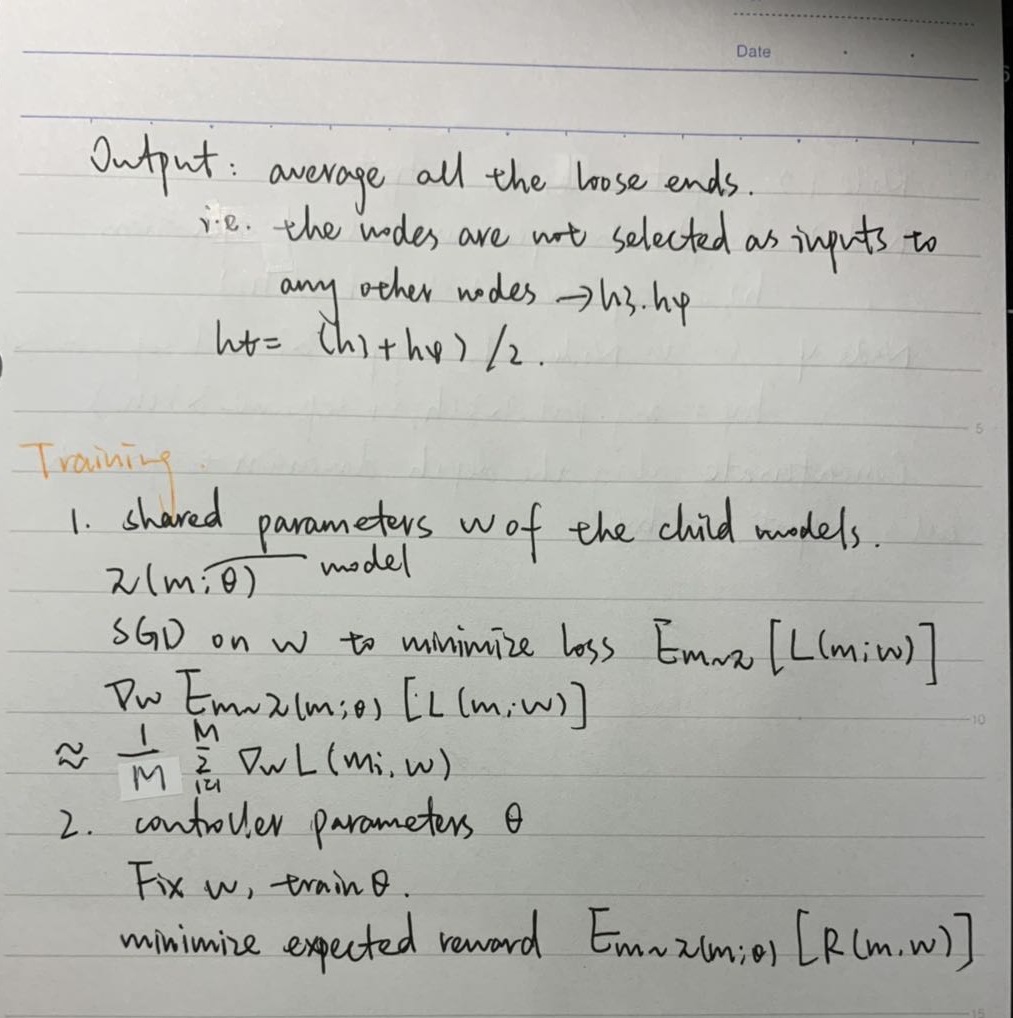 Date
Output: average all the loose ends.
i.e. the nodes are not selected as inputs to
any other nodes → h3. h4
ht = (h3 + h4) / 2.
5
Training.
1. shared parameters w of the child models.
π(m; θ) model
SGD on w to minimize loss Em~π [L(m; w)]
∇w Em~π(m;θ) [L(m; w)]
10
≈ 1/M Σ i=1 M ∇w L(mi, w)
2. controller parameters θ
Fix w, train θ.
minimize expected reward Em~π(m;θ) [R(m, w)]
15